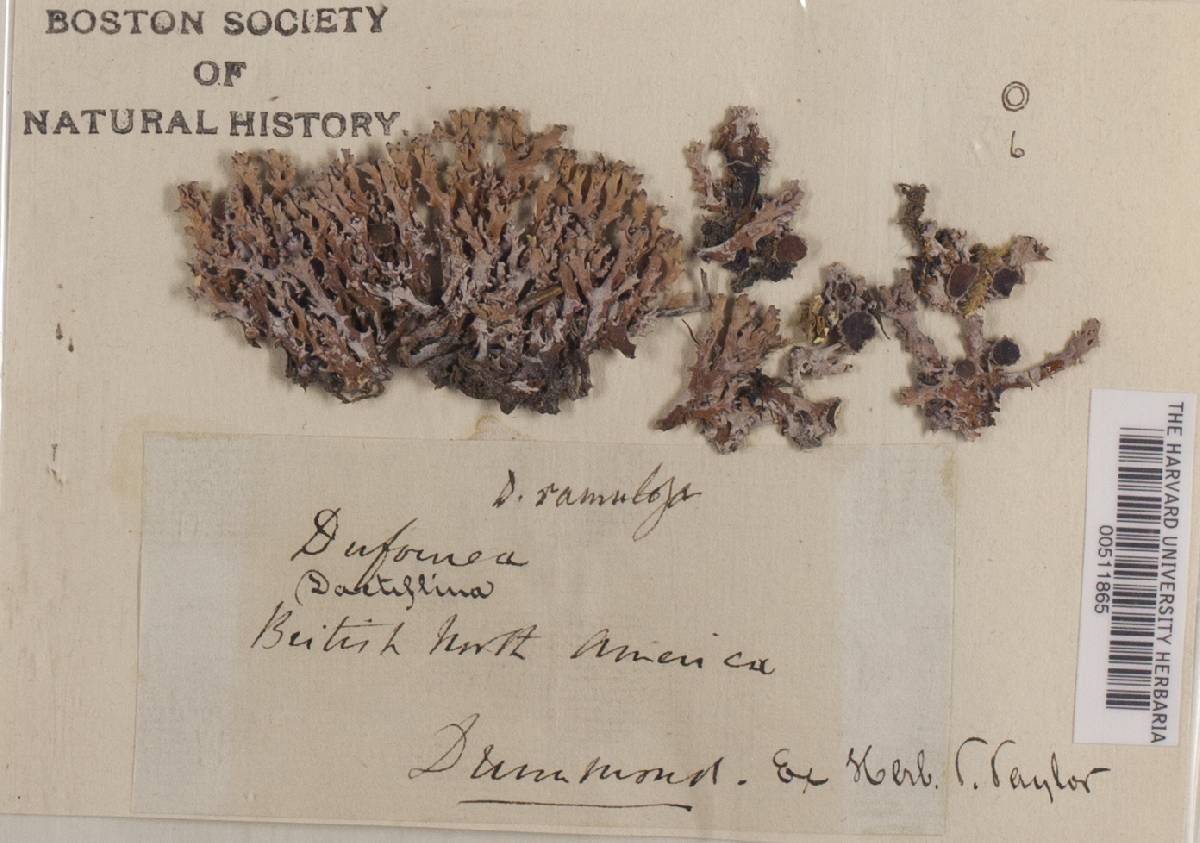 BOSTON SOCIETY
OF
NATURAL HISTORY.
6
D. ramulosa
Dufourea
(Dactylina
British North America
Drummond. Ex Herb. T. Taylor
THE HARVARD UNIVERSITY HERBARIA
00511865